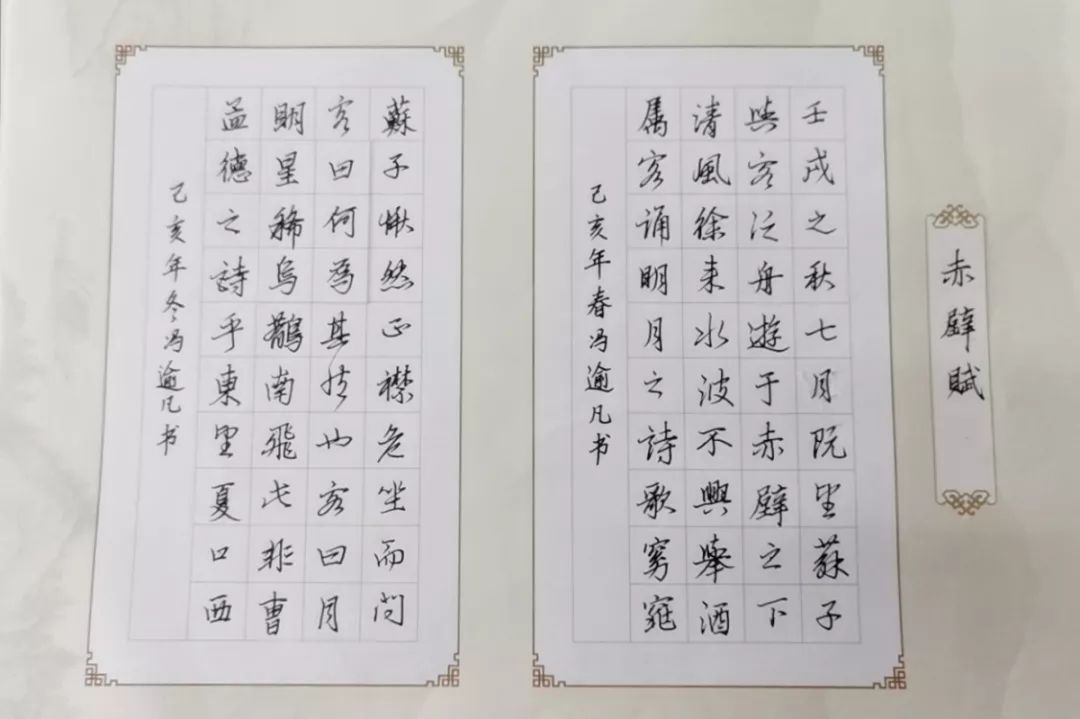 赤壁賦
壬戌之秋七月既望蘇子
與客泛舟遊于赤壁之下
清風徐来水波不興舉酒
属客诵明月之詩歌窈窕
己亥年春冯逾凡书
蘇子愀然正襟危坐而问
客曰何為其然也客曰月
明星稀烏鵲南飛此非曹
孟德之詩乎東望夏口西
己亥年冬冯逾凡书